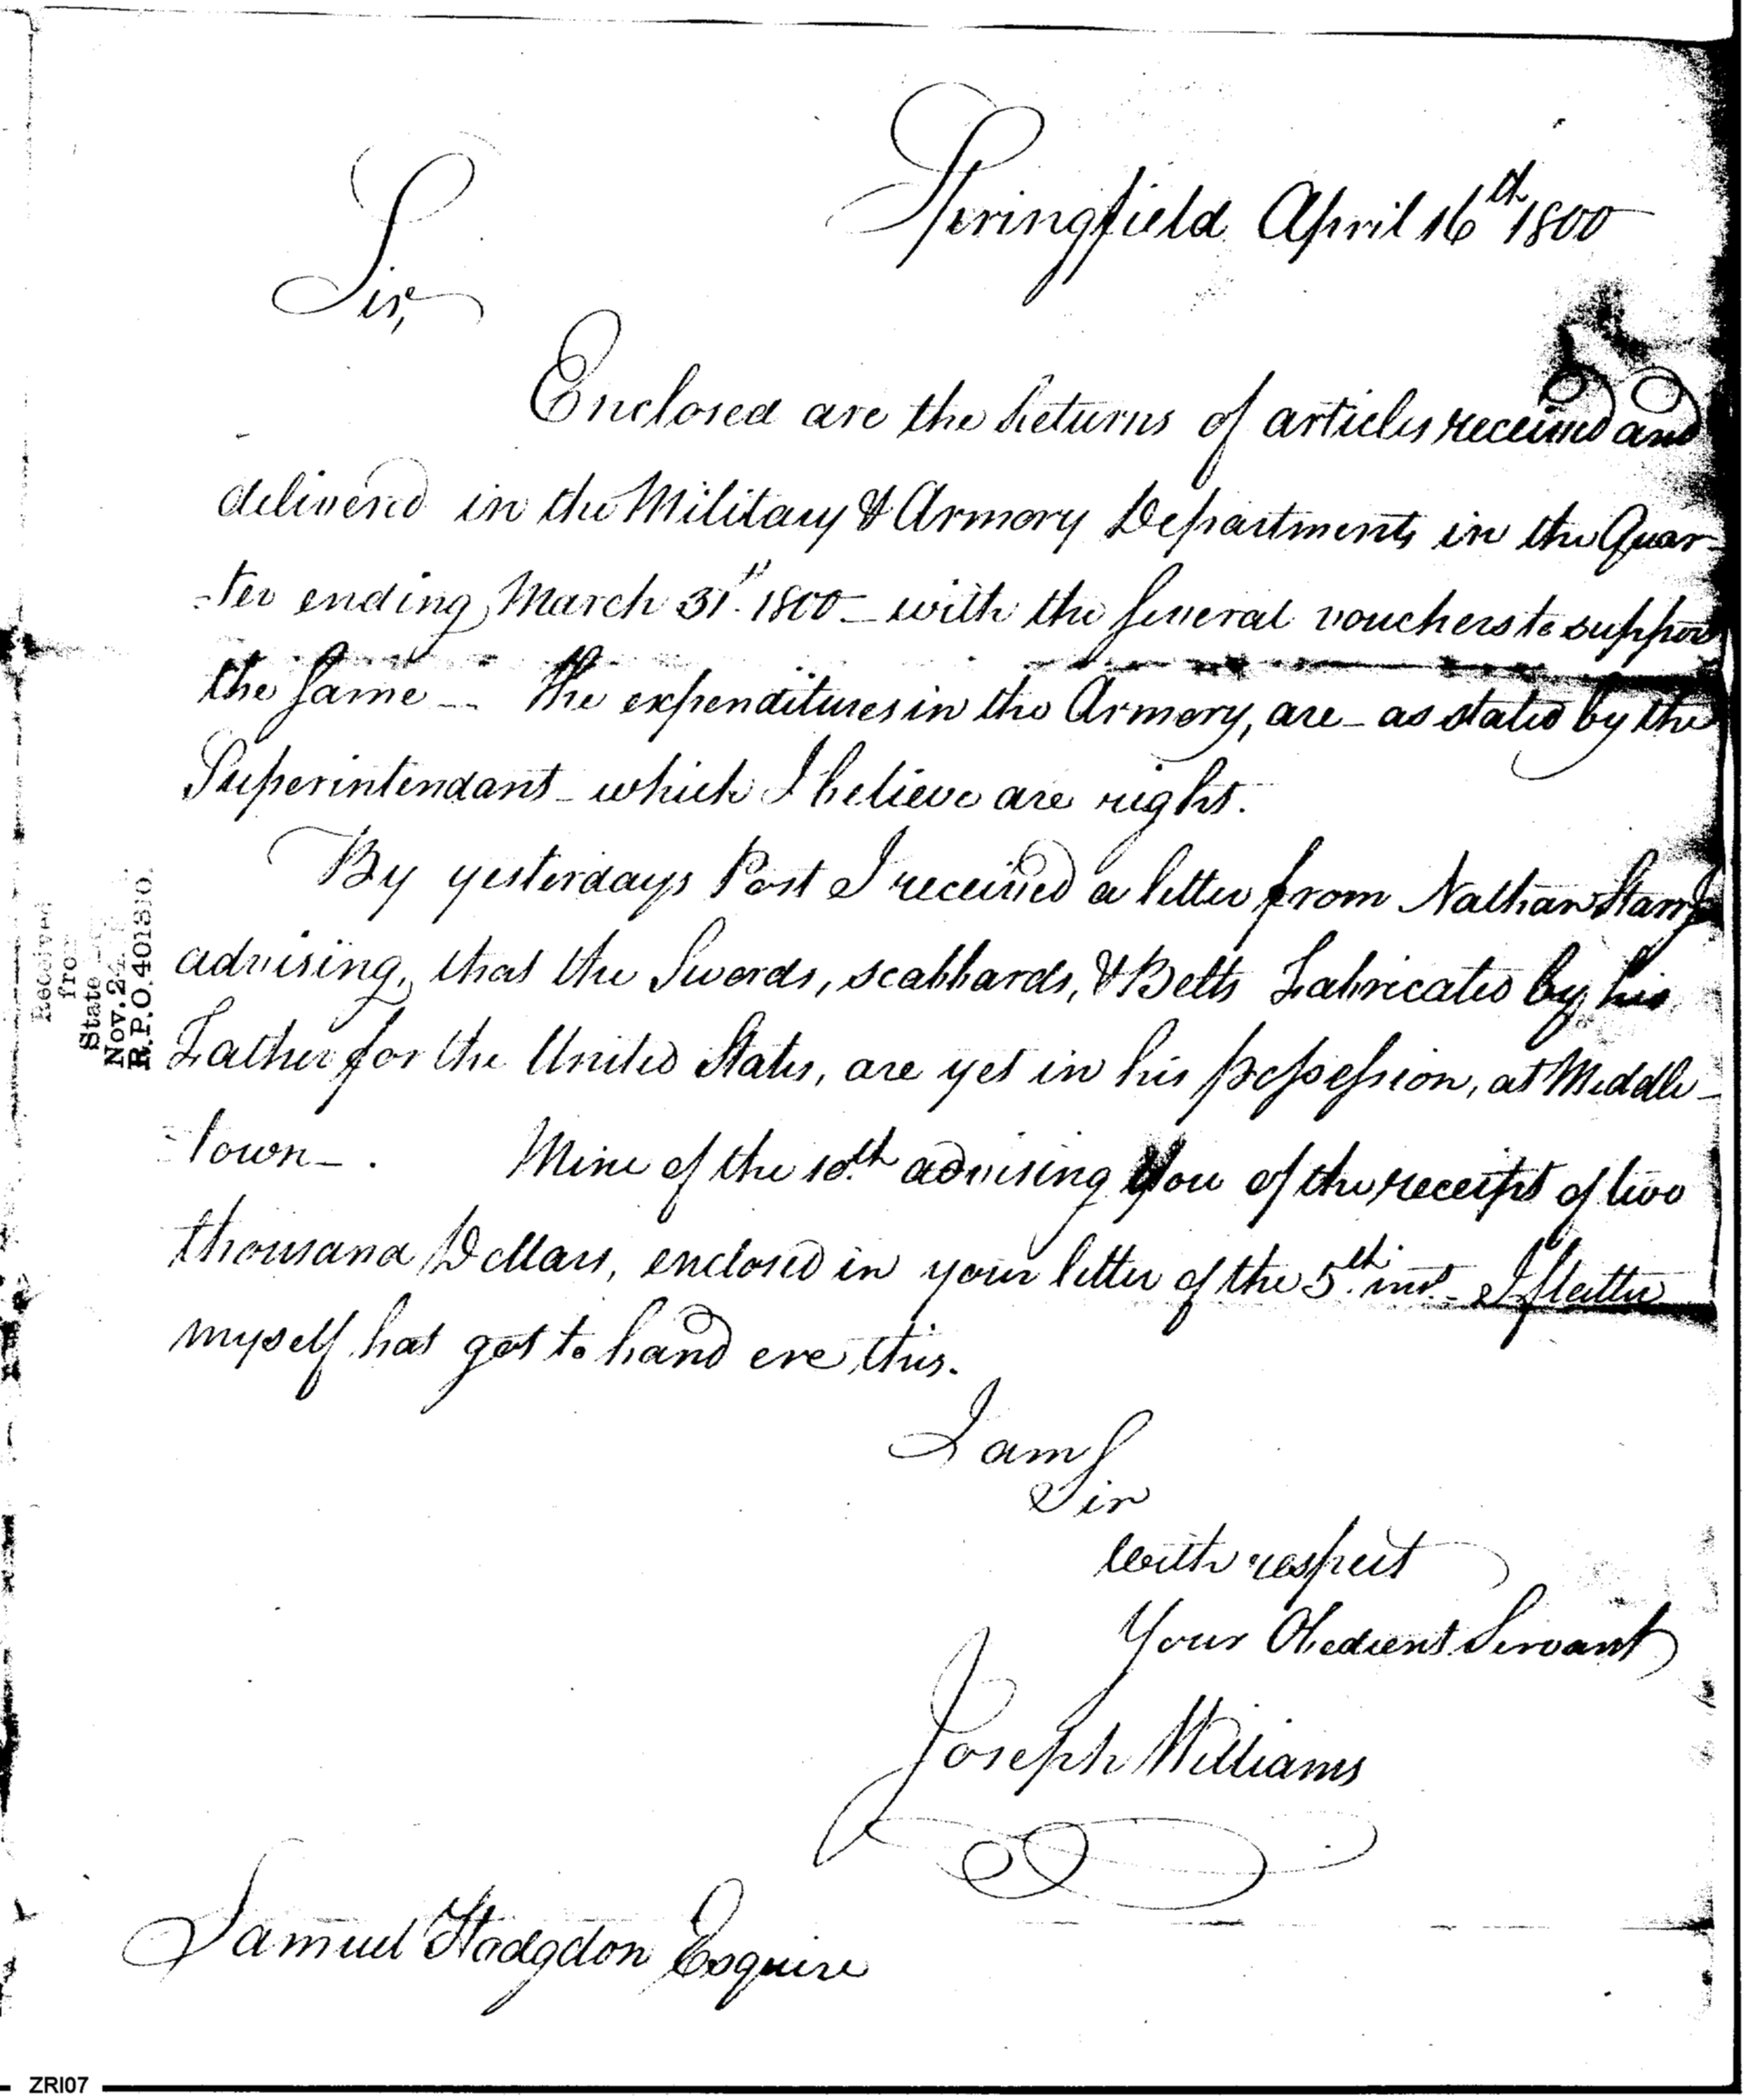 Springfield April 16th 1800
Sir,
Enclosed are the Returns of articles received and
delivered in the Military & Armory Departments in the Quar-
-ter ending March 31st. 1800 - with the several vouchers to support
the same - The expenditures in the Armory, are - as stated by the
Superintendant - which I believe are right.
By yesterdays Post I received a letter from Nathan Starr
advising, that the Swords, scabbards, & Belts Fabricated by his
Father for the United States, are yet in his possession, at Middle-
-town - . Mine of the 10th. advising you of the receipt of two
thousand Dollars, enclosed in your letter of the 5th. inst. - I flatter
myself has got to hand ere this.
I am
Sir
with respect
Your Obedient Servant
Joseph Williams
Samuel Hodgdon Esquire
Received
from
State
Nov. 24
R.P.O. 401810.
ZRI07